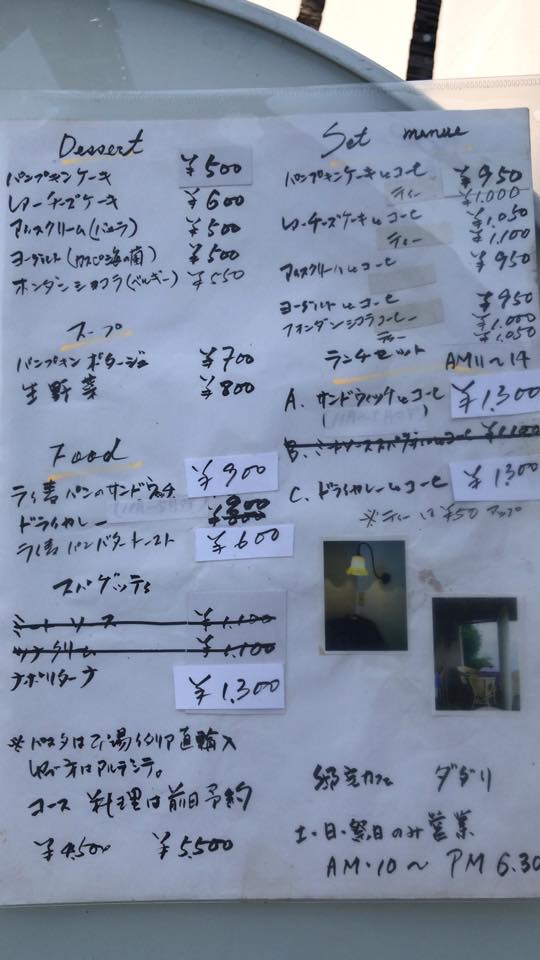 Dessert
パンプキンケーキ ¥500
レアーチーズケーキ ¥600
アイスクリーム(バニラ) ¥500
ヨーグルト(カスピ海の菌) ¥500
ホンダンショコラ(ベルギー) ¥550
スープ
パンプキンポタージュ ¥700
生野菜 ¥800
Food
ライ麦パンのサンドウィッチ ¥900
ドライカレー 900 ¥800
ライ麦パンバタートースト ¥600
スパゲッティ
ミートソース ¥1.100
ツナクリーム ¥1.100
ナポリターナ ¥1,300
※パスタは工場イタリア直輸入
ゆで方はアルデンテ。
コース料理は前日予約
¥4,500 ¥5,500
Set menus
パンプキンケーキとコーヒ ¥950
ティー ¥1,000
レアーチーズケーキとコーヒ ¥1,050
ティー ¥1,100
アイスクリームとコーヒ ¥950
ヨーグルトとコーヒ ¥950
フォンダンショコラコーヒー ¥1,000
ティー ¥1,050
ランチセット AM11〜14
A. サンドウィッチとコーヒ ¥1,300
B. ミートソーススパゲティとコーヒ ¥1,100
C. ドライカレーとコーヒ ¥1300
※ティーは¥50アップ
カフェ ダダリ
土・日・祭日のみ営業
AM・10〜PM 6.30